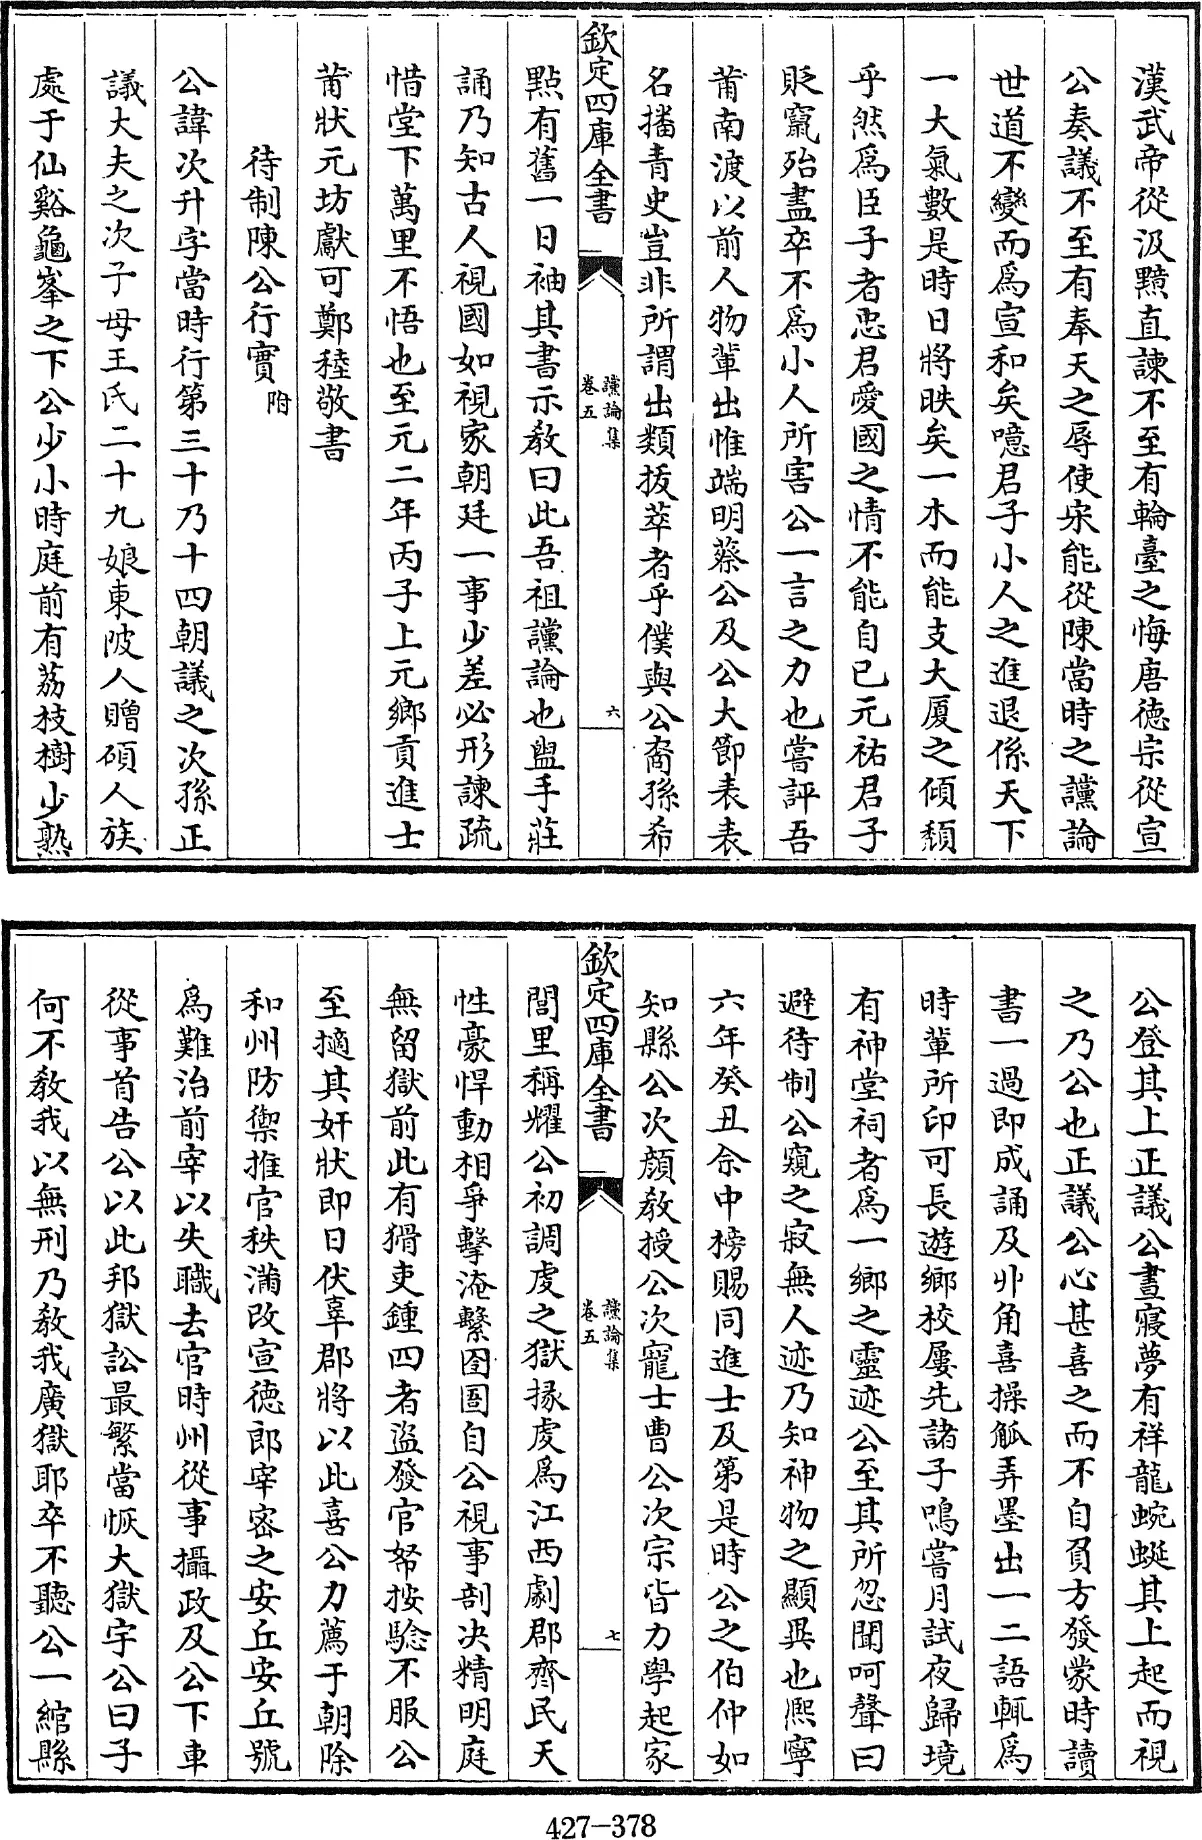 漢武帝從汲黯直諫不至有輪臺之悔唐德宗從宣
公奏議不至有奉天之辱使宋能從陳當時之讜論
世道不變而爲宣和矣噫君子小人之進退係天下
一大氣數是時日將昳矣一木而能支大厦之傾頽
乎然爲臣子者忠君愛國之情不能自已元祐君子
貶竄殆盡卒不爲小人所害公一言之力也嘗評吾
莆南渡以前人物輩出惟端明蔡公及公大節表表
名播青史豈非所謂出類拔萃者乎僕與公裔孫希
欽定四庫全書
讜論集
卷五
六
點有舊一日袖其書示教曰此吾祖讜論也盥手莊
誦乃知古人視國如視家朝廷一事少差必形諫疏
惜堂下萬里不悟也至元二年丙子上元鄉貢進士
莆狀元坊獻可鄭稑敬書
待制陳公行實附
公諱次升字當時行第三十乃十四朝議之次孫正
議大夫之次子母王氏二十九娘東陂人贈碩人族
處于仙谿龜峯之下公少小時庭前有荔枝樹少熟
公登其上正議公晝寢夢有祥龍蜿蜒其上起而視
之乃公也正議公心甚喜之而不自負方發蒙時讀
書一過即成誦及丱角喜操觚弄墨出一二語輒爲
時輩所印可長遊鄉校屢先諸子鳴嘗月試夜歸境
有神堂祠者爲一鄉之靈迹公至其所忽聞呵聲曰
避待制公窺之寂無人迹乃知神物之顯異也熙寧
六年癸丑佘中榜賜同進士及第是時公之伯仲如
知縣公次顔教授公次寵士曹公次宗皆力學起家
欽定四庫全書
讜論集
卷五
七
閭里稱耀公初調䖍之獄掾䖍爲江西劇郡齊民天
性豪悍動相爭擊淹繫囹圄自公視事剖决精明庭
無留獄前此有猾吏鍾四者盜發官帑按驗不服公
至擿其奸狀即日伏辜郡將以此喜公力薦于朝除
和州防禦推官秩滿改宣徳郎宰密之安丘安丘號
爲難治前宰以失職去官時州從事攝政及公下車
從事首告公以此邦獄訟最繁當恢大獄宇公曰子
何不教我以無刑乃教我廣獄耶卒不聽公一綰縣
427-378